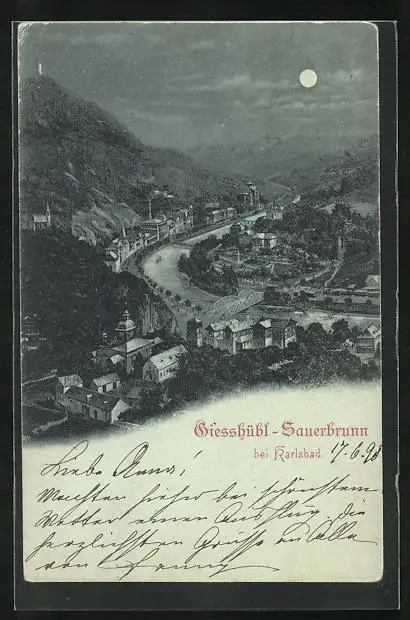 Giesshübl-Sauerbrunn
bei Karlsbad.
17-6-98
Liebe Anna!
Machten hieher bei schönstem
Wetter einen Ausflug. Die
herzlichsten Grüsse an Alle
von Fanny